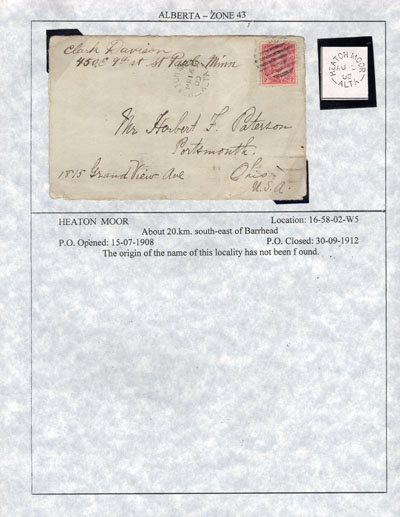 ALBERTA – ZONE 43
Clark Davison
450 E 9th st St Paul Minn
ALTA
HEATON MOOR
ALTA
Mr Herbert F. Paterson
Portsmouth.
1815 Grand View Ave Ohio
U.S.A.
HEATON MOOR Location: 16-58-02-W5
About 20.km. south-east of Barrhead
P.O. Opened: 15-07-1908 P.O. Closed: 30-09-1912
The origin of the name of this locality has not been f ound.